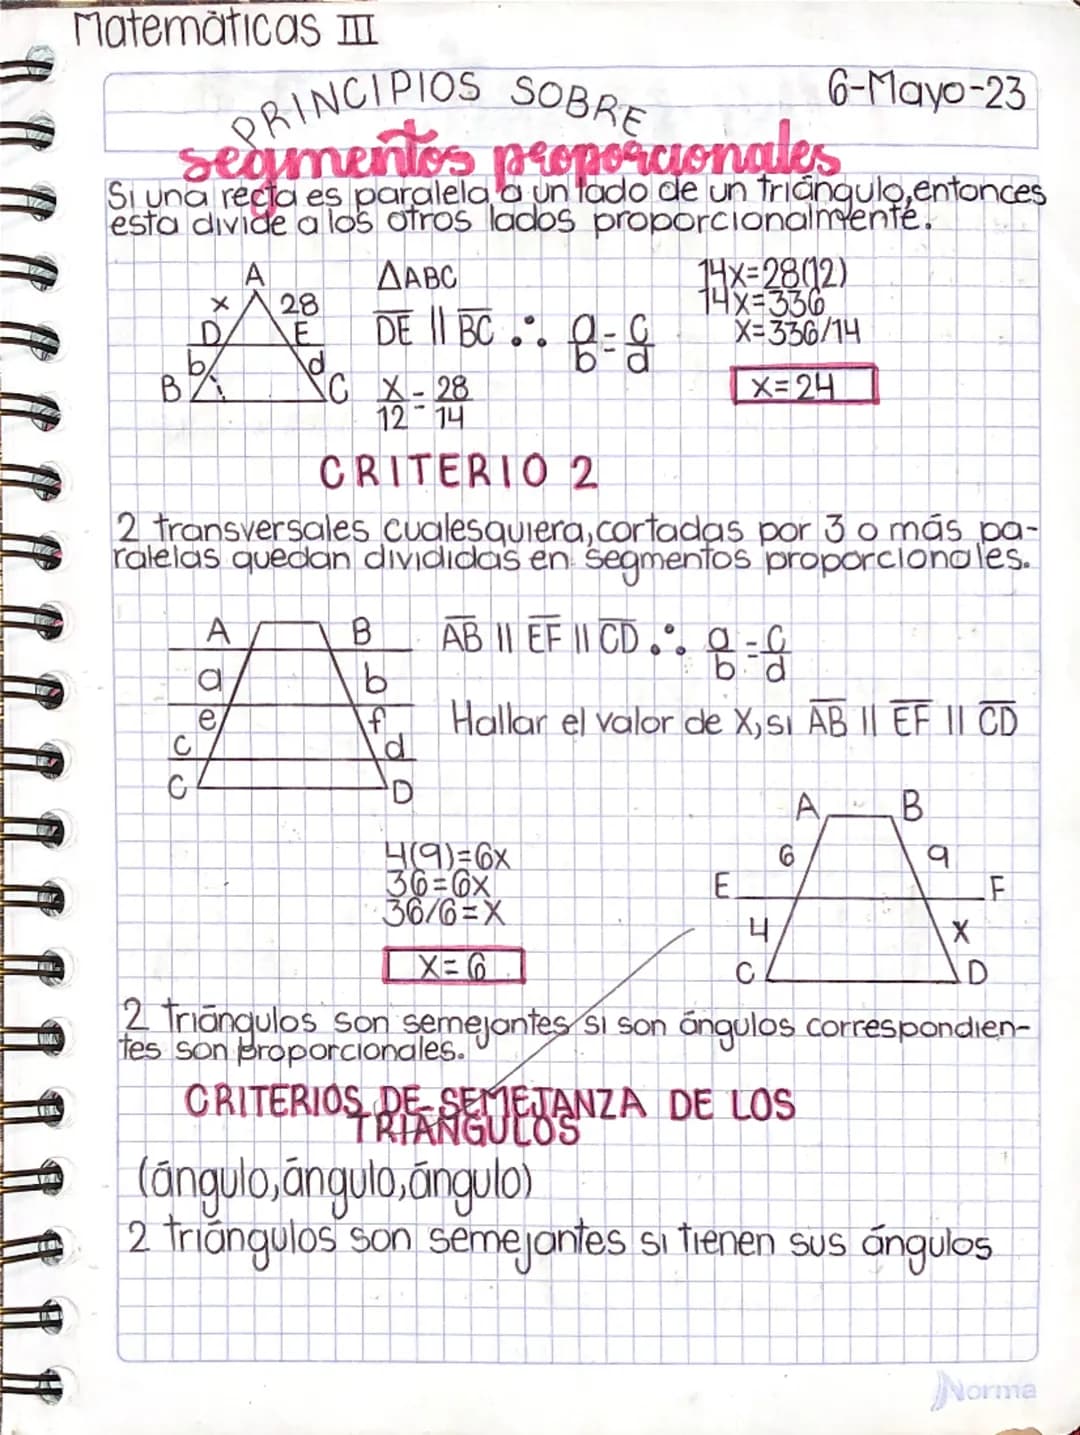 Matemáticas III
6-Mayo-23
PRINCIPIOS SOBRE
segmentos proporcionales
Si una recta es paralela a un lado de un triángulo, entonces
esta divide a los otros lados proporcionalmente.
A
x 28
D E
b d
B C
△ABC
DE || BC ∴ a/b = c/d
x/12 = 28/14
14x=28(12)
14x=336
x=336/14
x=24
CRITERIO 2
2 transversales cualesquiera, cortadas por 3 o más pa-
ralelas quedan divididas en segmentos proporcionales.
A B
a b
e f
c d
C D
AB || EF || CD ∴ a/b = c/d
Hallar el valor de X, si AB || EF || CD
A B
6 9
E F
4 x
C D
4(9)=6x
36=6x
36/6=x
x=6
2 triángulos son semejantes si son ángulos correspondien-
tes son proporcionales.
CRITERIOS DE SEMEJANZA DE LOS
TRIÁNGULOS
(ángulo, ángulo, ángulo)
2 triángulos son semejantes si tienen sus ángulos
Norma